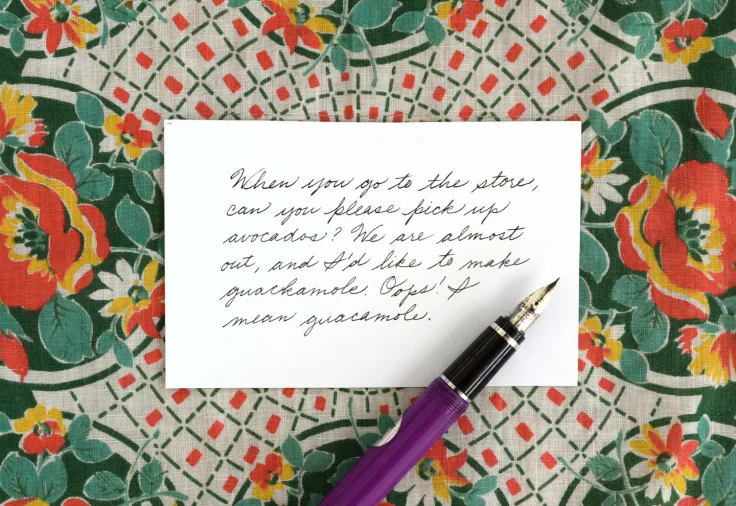 When you go to the store,
can you please pick up
avocados? We are almost
out, and I'd like to make
guackamole. Oops! I
mean guacamole.